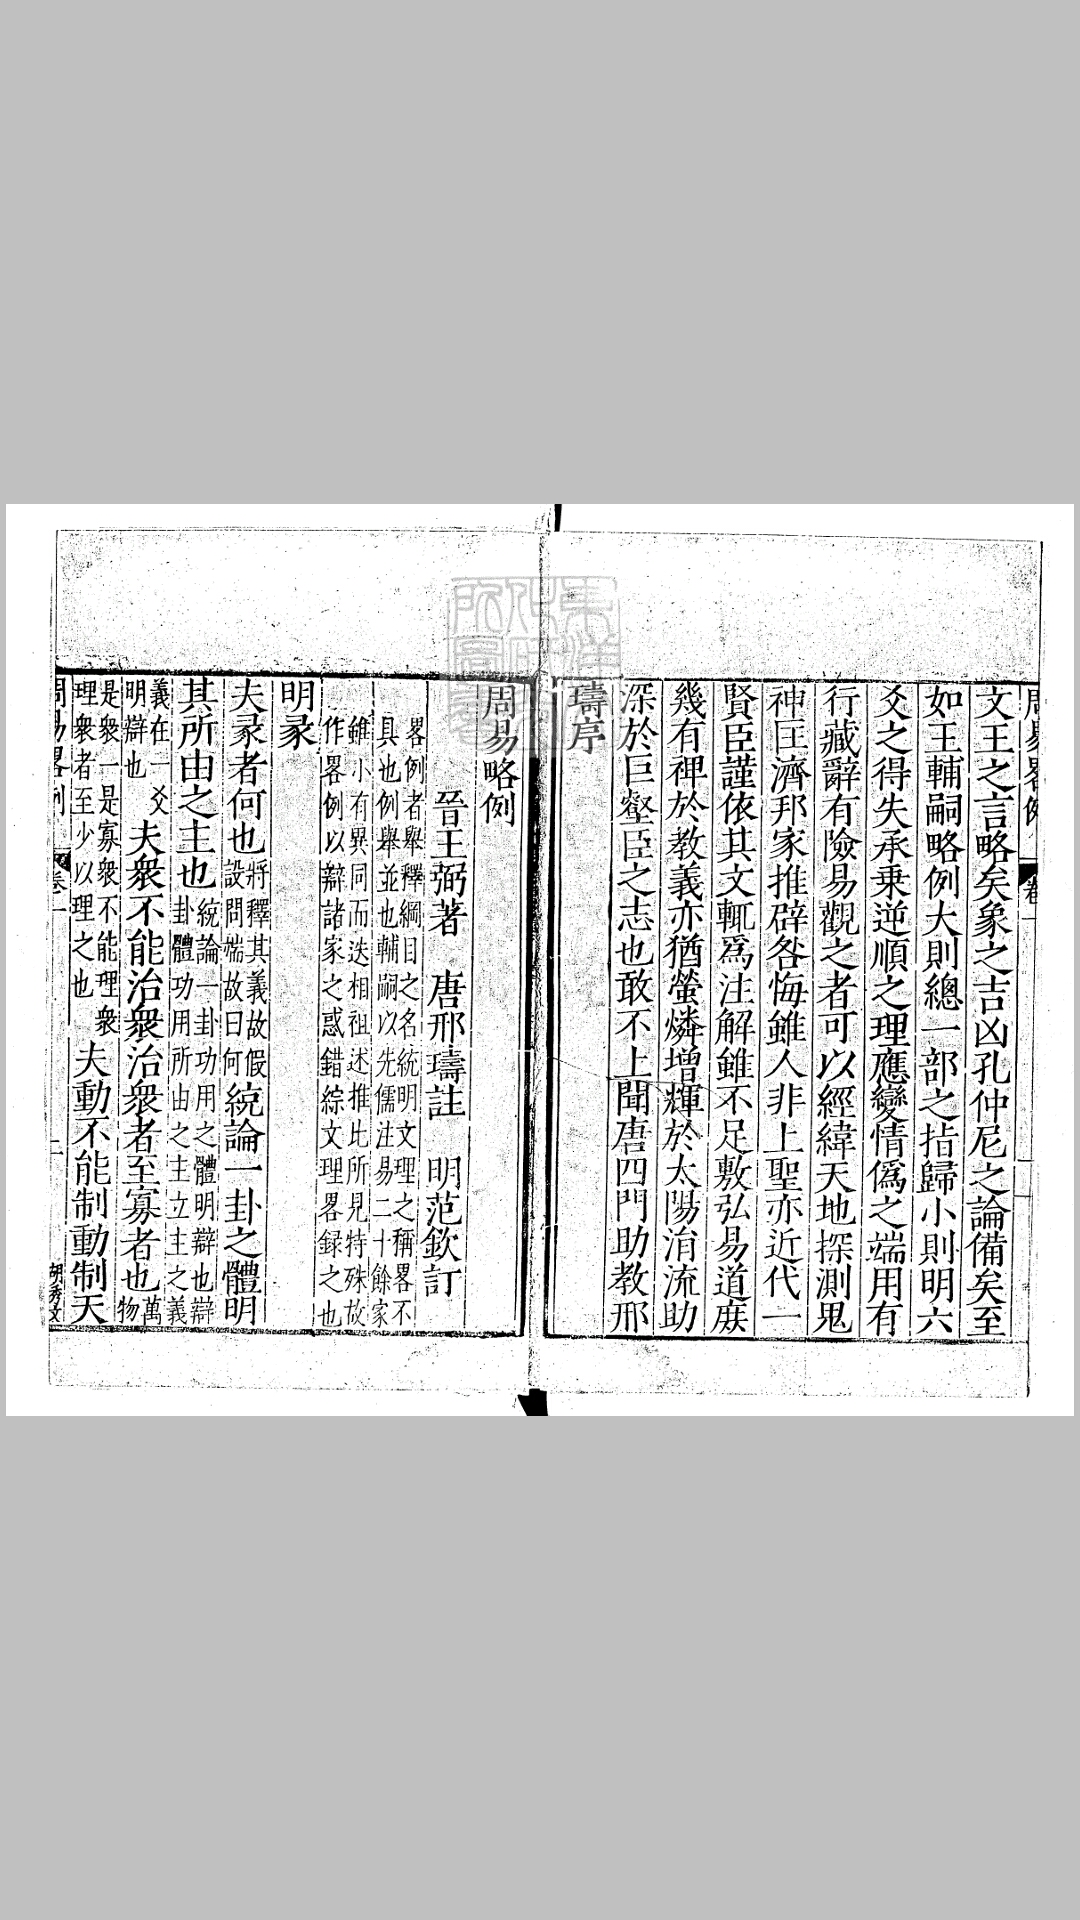 周易畧例 卷一
文王之言略矣象之吉凶孔仲尼之論備矣至
如王輔嗣略例大則總一部之指歸小則明六
爻之得失承乗逆順之理應變情僞之端用有
行藏辭有險易觀之者可以經緯天地探測鬼
神匡濟邦家推辟咎悔雖人非上聖亦近代一
賢臣謹依其文輒爲注解雖不足敷弘易道庻
幾有裨於教義亦猶螢燐增輝於太陽涓流助
深於巨壑臣之志也敢不上聞唐四門助教邢
璹序
周易略例
晉王弼著 唐邢璹註 明范欽訂
畧例者舉釋綱目之名統明文理之稱畧不
具也例舉並也輔嗣以先儒注易二十餘家
雖小有異同而迭相祖述推比所見特殊故
作畧例以辯諸家之惑錯綜文理畧録之也
明彖
夫彖者何也將釋其義故假設問端故曰何統論一卦之體明
其所由之主也統論一卦功用之體明辯也辯卦體功用所由之主立主之義
義在一爻明辯也夫衆不能治衆治衆者至寡者也萬物
是衆一是寡衆不能理衆理衆者至少以理之也夫動不能制動制天
周易畧例 卷一 二 胡秀文